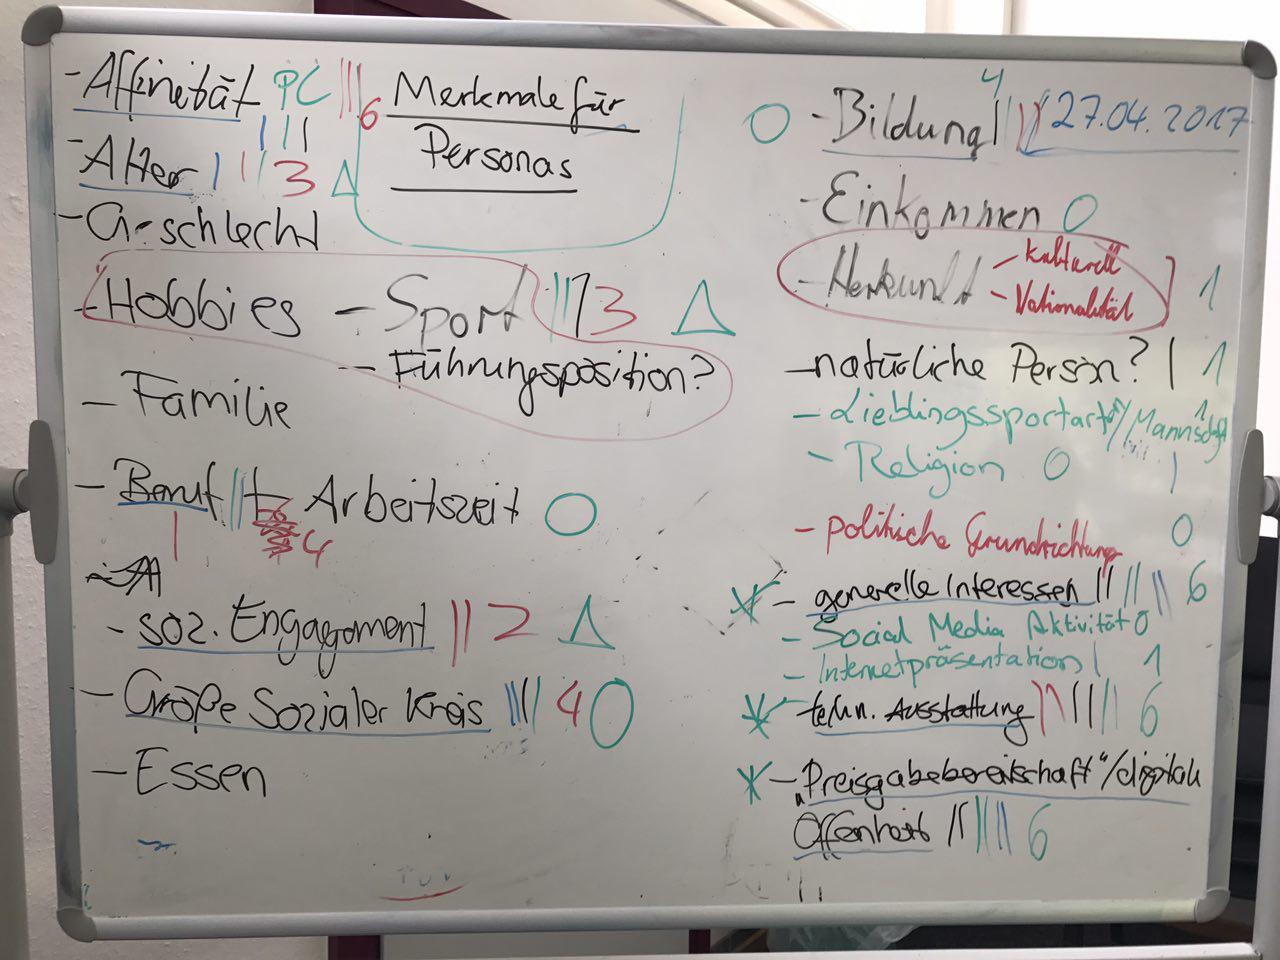 Merkmale für
Personas
27.04.2017
- Affinität PC 6
- Alter 3
- Geschlecht
- Hobbies - Sport 3
- Führungsposition?
- Familie
- Beruf + Arbeitszeit
4
- soz. Engagement 2
- Größe Sozialer Kreis 4
- Essen
4
- Bildung
- Einkommen
- Herkunft - kulturell
- Nationalität
1
- natürliche Person? 1
- Lieblingssportart/Mannschaft
1
- Religion
- politische Grundrichtung 0
- generelle Interessen 6
- Social Media Aktivität 0
- Internetpräsentation 1
- techn. Ausstattung 6
- "Preisgabebereitschaft"/digitale
Offenheit 6